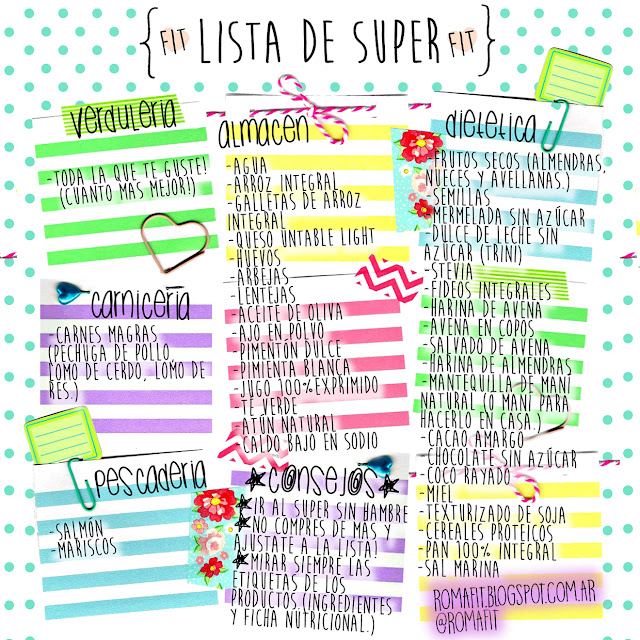 {FIT LISTA DE SUPER FIT}
VERDULERIA
-TODA LA QUE TE GUSTE!
(CUANTO MAS MEJOR!)
CARNICERÍA
-CARNES MAGRAS
(PECHUGA DE POLLO,
LOMO DE CERDO, LOMO DE
RES.)
PESCADERIA
-SALMÓN
-MARISCOS
ALMACEN
-AGUA
-ARROZ INTEGRAL
-GALLETAS DE ARROZ
INTEGRAL
-QUESO UNTABLE LIGHT
-HUEVOS
-ARBEJAS
-LENTEJAS
-ACEITE DE OLIVA
-AJO EN POLVO
-PIMENTÓN DULCE
-PIMIENTA BLANCA
-JUGO 100%EXPRIMIDO
-TE VERDE
-ATÚN NATURAL
-CALDO BAJO EN SODIO
CONSEJOS
IR AL SUPER SIN HAMBRE
NO COMPRES DE MAS Y
AJUSTATE A LA LISTA!
MIRAR SIEMPRE LAS
ETIQUETAS DE LOS
PRODUCTOS (INGREDIENTES
Y FICHA NUTRICIONAL.)
DIETETICA
-FRUTOS SECOS (ALMENDRAS,
NUECES Y AVELLANAS.)
-SEMILLAS
-MERMELADA SIN AZÚCAR
-DULCE DE LECHE SIN
AZÚCAR (TRINI)
-STEVIA
-FIDEOS INTEGRALES
-HARINA DE AVENA
-AVENA EN COPOS
-SALVADO DE AVENA
-HARINA DE ALMENDRAS
-MANTEQUILLA DE MANÍ
NATURAL (O MANÍ PARA
HACERLO EN CASA.)
-CACAO AMARGO
-CHOCOLATE SIN AZÚCAR
-COCO RAYADO
-MIEL
-TEXTURIZADO DE SOJA
-CEREALES PROTEICOS
-PAN 100% INTEGRAL
-SAL MARINA
ROMAFIT.BLOGSPOT.COM.AR
@ROMAFIT